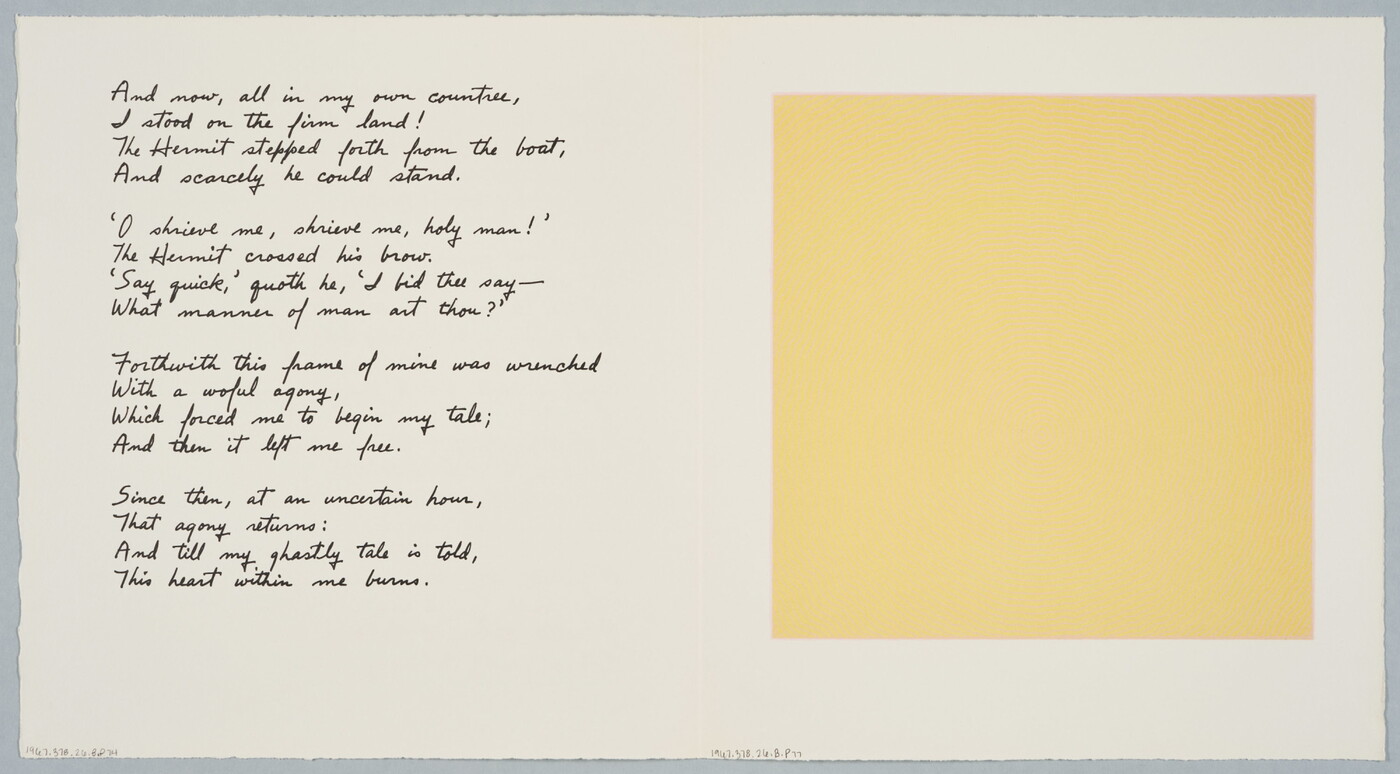 And now, all in my own countree,
I stood on the firm land!
The Hermit stepped forth from the boat,
And scarcely he could stand.
'O shrieve me, shrieve me, holy man!'
The Hermit crossed his brow.
'Say quick,' quoth he, 'I bid thee say—
What manner of man art thou?'
Forthwith this frame of mine was wrenched
With a woful agony,
Which forced me to begin my tale;
And then it left me free.
Since then, at an uncertain hour,
That agony returns:
And till my ghastly tale is told,
This heart within me burns.
1967.378.26.B.P77